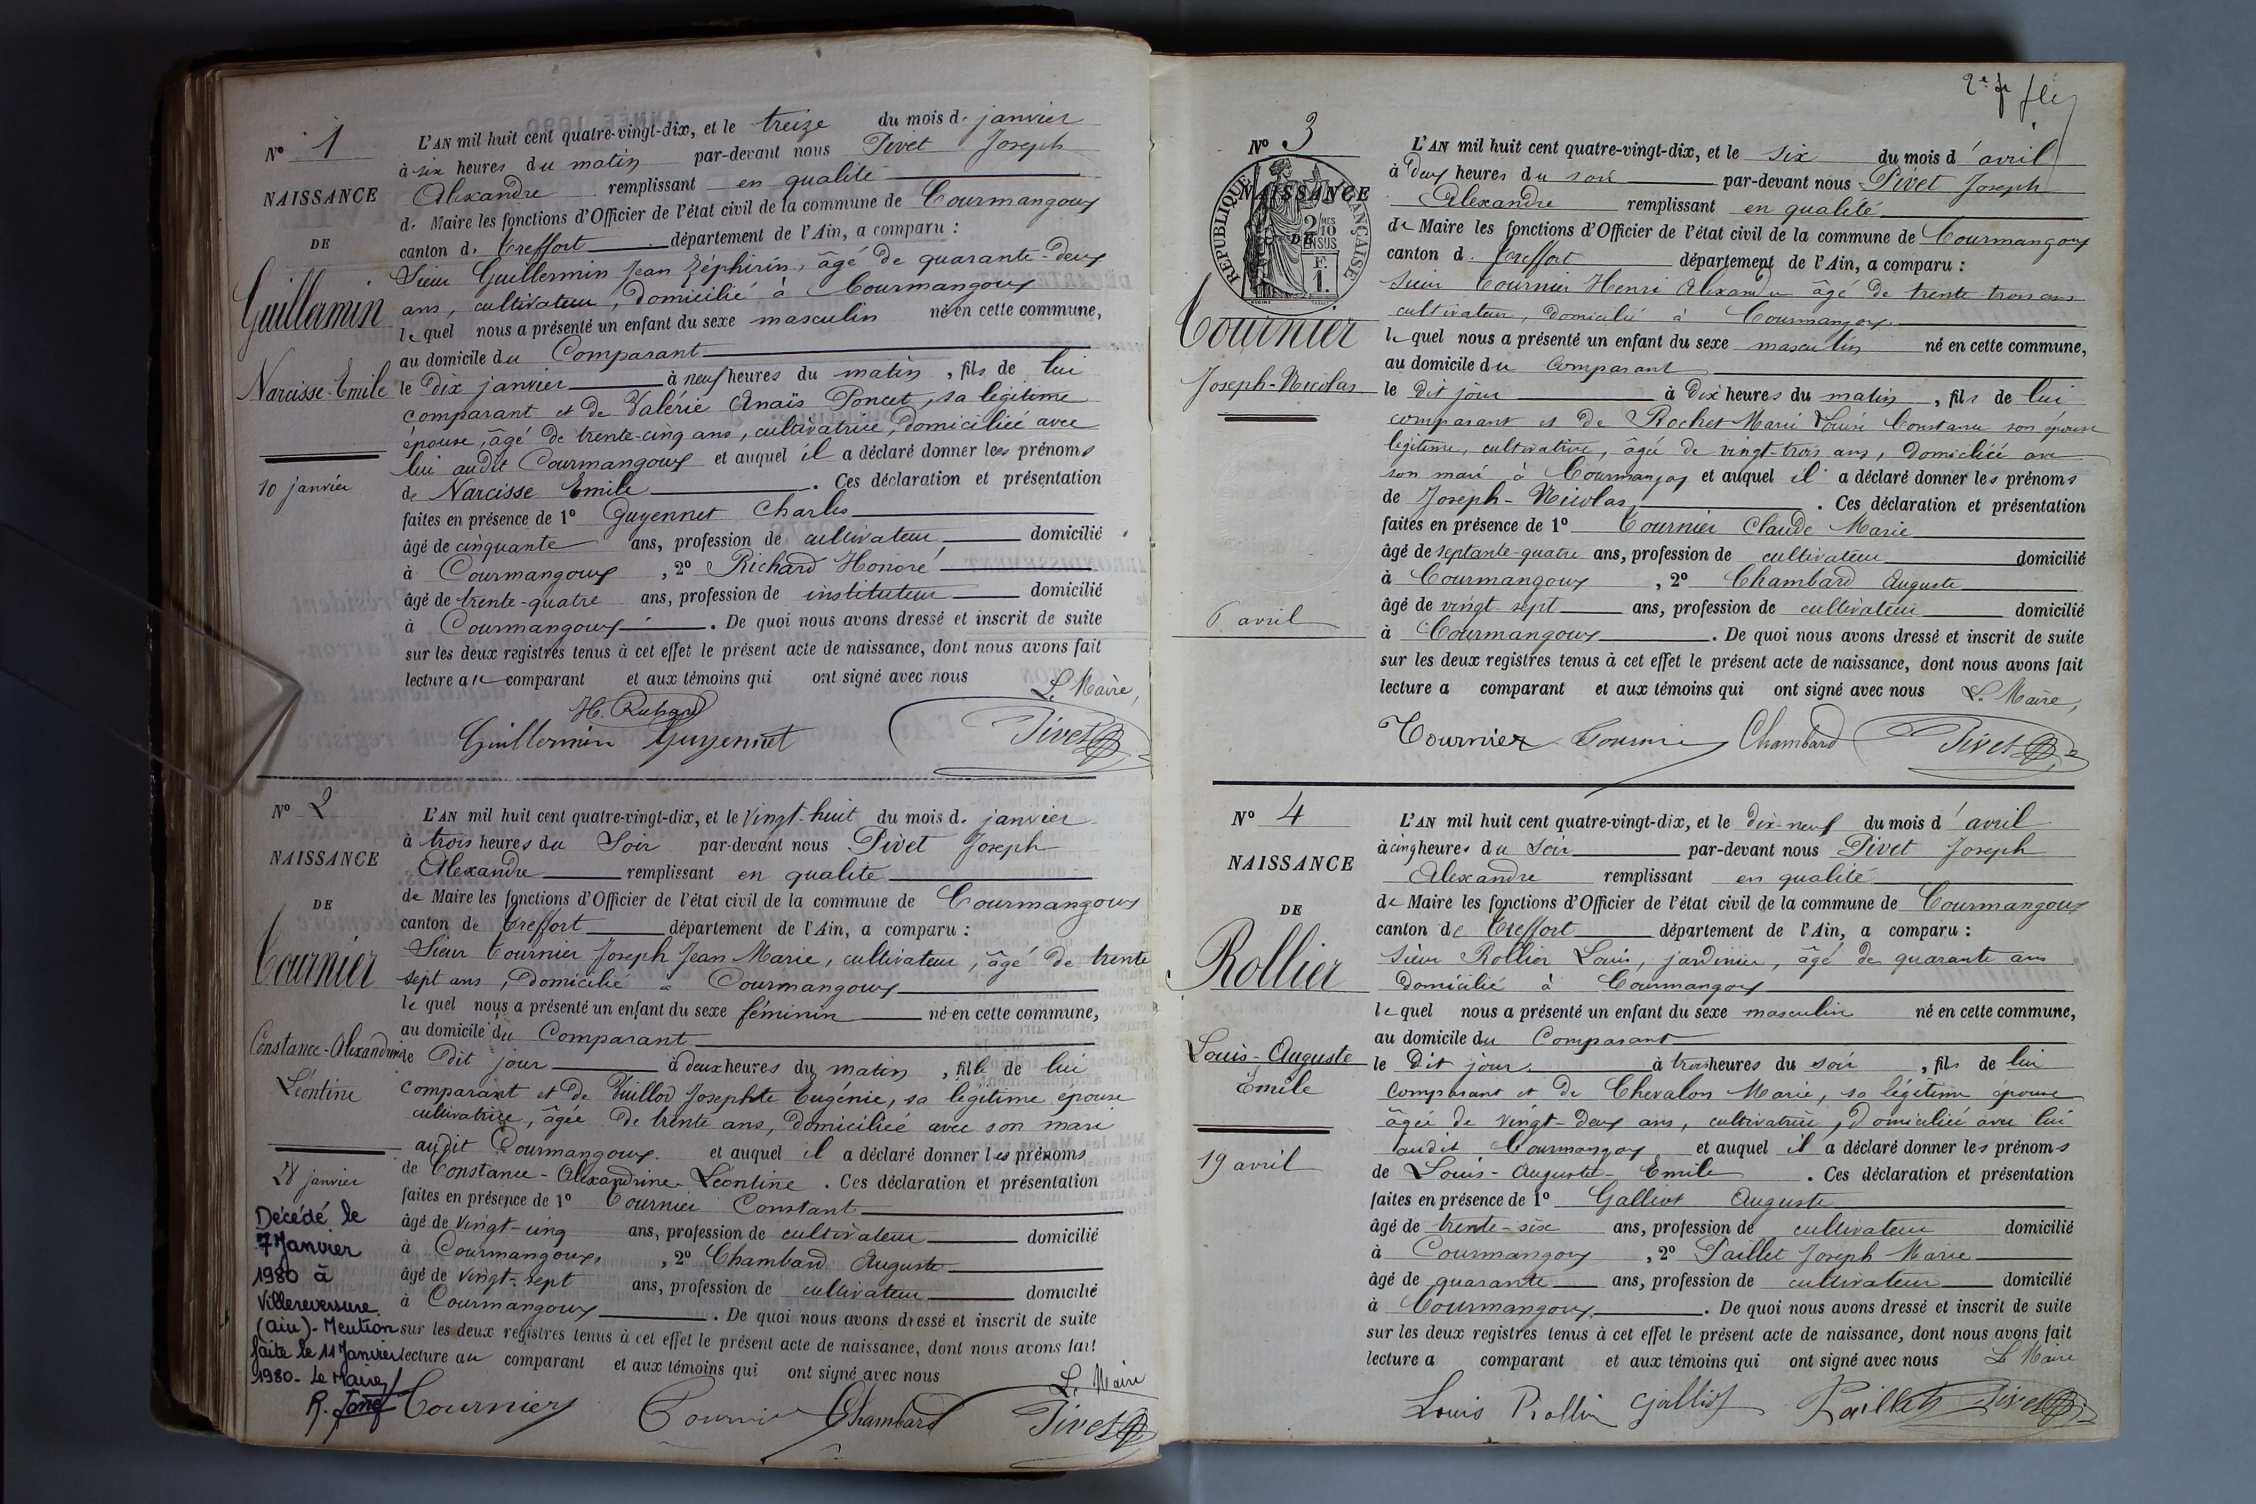 Nº 1
NAISSANCE
DE
Guillermin
Narcisse-Emile
10 janvier
L'AN mil huit cent quatre-vingt-dix, et le treize du mois d. janvier
à six heures du matin par-devant nous Pivet Joseph
Alexandre remplissant en qualité
d. Maire les fonctions d'Officier de l'état civil de la commune de Courmangoux
canton d. Treffort département de l'Ain, a comparu :
Sieur Guillermin Jean Zéphirin, âgé de quarante-deux
ans, cultivateur, domicilié à Courmangoux
lequel nous a présenté un enfant du sexe masculin né en cette commune,
au domicile du Comparant
le dix janvier à neuf heures du matin, fils de lui
comparant et de Valérie Anaïs Poncet, sa légitime
épouse, âgé de trente-cinq ans, cultivatrice, domiciliée avec
lui audit Courmangoux et auquel il a déclaré donner les prénoms
de Narcisse Emile. Ces déclaration et présentation
faites en présence de 1º Guyennet Charles
âgé de cinquante ans, profession de cultivateur domicilié
à Courmangoux, 2º Richard Honoré
âgé de trente-quatre ans, profession de instituteur domicilié
à Courmangoux. De quoi nous avons dressé et inscrit de suite
sur les deux registres tenus à cet effet le présent acte de naissance, dont nous avons fait
lecture a le comparant et aux témoins qui ont signé avec nous
Le Maire,
H. Richard
Guillermin Guyennet Pivet
Nº 2
NAISSANCE
DE
Tournier
Constance-Alexandrine
Léontine
28 janvier
Décédé le
7 Janvier
1980 à
Villereversure
(Ain). Mention
faite le 11 Janvier
1980. Le Maire
L'AN mil huit cent quatre-vingt-dix, et le vingt-huit du mois d. janvier
à trois heures du Soir par-devant nous Pivet Joseph
Alexandre remplissant en qualité
de Maire les fonctions d'Officier de l'état civil de la commune de Courmangoux
canton de Treffort département de l'Ain, a comparu :
Sieur Tournier Joseph Jean Marie, cultivateur, âgé de trente
sept ans, domicilié à Courmangoux
lequel nous a présenté un enfant du sexe féminin né en cette commune,
au domicile du Comparant
le dit jour à deux heures du matin, fille de lui
comparant et de Vuillod Josephte Eugénie, sa légitime épouse
cultivatrice, âgée de trente ans, domiciliée avec son mari
audit Courmangoux. et auquel il a déclaré donner les prénoms
de Constance-Alexandrine-Léontine. Ces déclaration et présentation
faites en présence de 1º Tournier Constant
âgé de vingt-cinq ans, profession de cultivateur domicilié
à Courmangoux, 2º Chambard Auguste
âgé de vingt-sept ans, profession de cultivateur domicilié
à Courmangoux. De quoi nous avons dressé et inscrit de suite
sur les deux registres tenus à cet effet le présent acte de naissance, dont nous avons fait
lecture au comparant et aux témoins qui ont signé avec nous
Le Maire
Tournier Tournier Chambard Pivet
Nº 3
NAISSANCE
DE
RÉPUBLIQUE FRANÇAISE
2/10 MES
EN SUS
F.
1.
Tournier
Joseph-Nicolas
6 avril
L'AN mil huit cent quatre-vingt-dix, et le six du mois d'avril
à deux heures du soir par-devant nous Pivet Joseph
Alexandre remplissant en qualité
de Maire les fonctions d'Officier de l'état civil de la commune de Courmangoux
canton d. Treffort département de l'Ain, a comparu :
Sieur Tournier Henri Alexandre âgé de trente trois ans
cultivateur, domicilié à Courmangoux
lequel nous a présenté un enfant du sexe masculin né en cette commune,
au domicile du comparant
le dit jour à dix heures du matin, fils de lui
comparant et de Rochet Marie Louise Constance son épouse
légitime, cultivatrice, âgée de vingt-trois ans, domiciliée avec
son mari à Courmangoux et auquel il a déclaré donner les prénoms
de Joseph-Nicolas. Ces déclaration et présentation
faites en présence de 1º Tournier Claude Marie
âgé de septante-quatre ans, profession de cultivateur domicilié
à Courmangoux, 2º Chambard Auguste
âgé de vingt sept ans, profession de cultivateur domicilié
à Courmangoux. De quoi nous avons dressé et inscrit de suite
sur les deux registres tenus à cet effet le présent acte de naissance, dont nous avons fait
lecture a comparant et aux témoins qui ont signé avec nous Le Maire,
Tournier Tournier Chambard Pivet
Nº 4
NAISSANCE
DE
Rollier
Louis-Auguste
Emile
19 avril
L'AN mil huit cent quatre-vingt-dix, et le dix-neuf du mois d'avril
à cinq heures du Soir par-devant nous Pivet Joseph
Alexandre remplissant en qualité
de Maire les fonctions d'Officier de l'état civil de la commune de Courmangoux
canton de Treffort département de l'Ain, a comparu :
Sieur Rollier Louis, jardinier, âgé de quarante ans
domicilié à Courmangoux
lequel nous a présenté un enfant du sexe masculin né en cette commune,
au domicile du Comparant
le dit jour à trois heures du soir, fils de lui
comparant et de Chevalon Marie, sa légitime épouse
âgée de vingt-deux ans, cultivatrice, domiciliée avec lui
audit Courmangoux et auquel il a déclaré donner les prénoms
de Louis-Auguste-Emile. Ces déclaration et présentation
faites en présence de 1º Galliot Auguste
âgé de trente-six ans, profession de cultivateur domicilié
à Courmangoux, 2º Paillet Joseph Marie
âgé de quarante ans, profession de cultivateur domicilié
à Courmangoux. De quoi nous avons dressé et inscrit de suite
sur les deux registres tenus à cet effet le présent acte de naissance, dont nous avons fait
lecture a comparant et aux témoins qui ont signé avec nous Le Maire
Louis Rollier Galliot Paillet Pivet